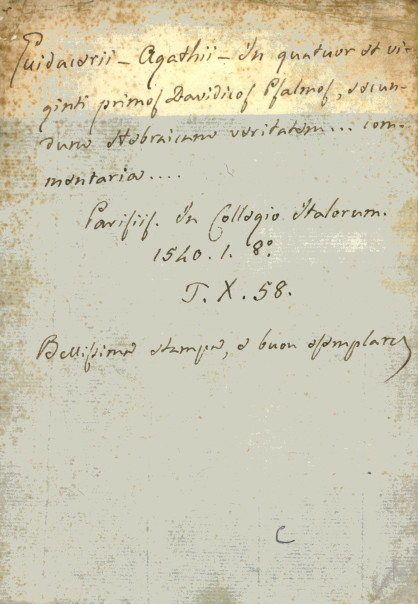 Guidacerii - Agathii - In quatuor et vi-
ginti primos Davidicos Psalmos, secun-
dum Hebraicam veritatem... com-
mentaria....
Parisiis. In Collegio Italorum.
1540. 1. 8.º
T. X. 58.
Bellissima stampa, e buon esemplare
C